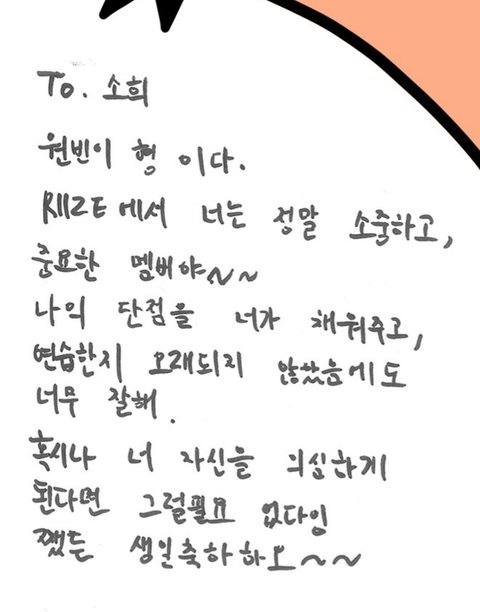 To. 소희
원빈이 형 이다.
RIIZE에서 너는 정말 소중하고,
중요한 멤버야~~
나의 단점을 너가 채워주고,
연습한지 오래되지 않았음에도
너무 잘해.
혹시나 너 자신을 의심하게
된다면 그럴필요 없다잉
쨌든 생일축하하오~~